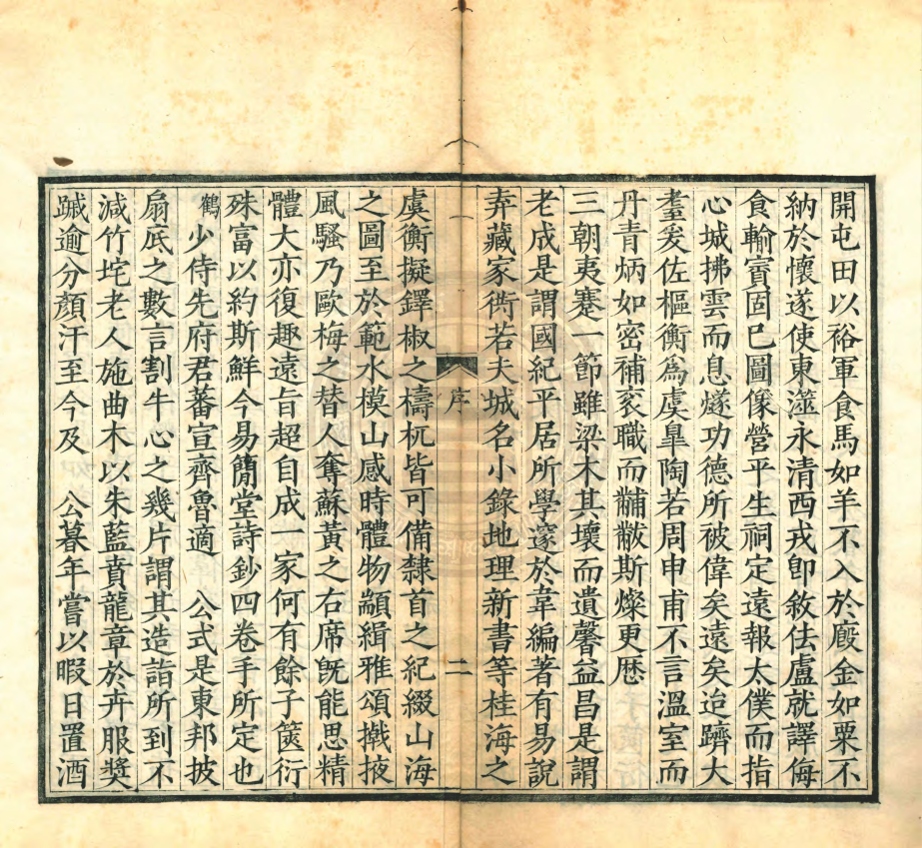 開屯田以裕軍食馬如羊不入於廄金如粟不
納於懷遂使東漨永清西戎卽敘佉盧就譯侮
食輸賨固巳圖像營平生祠定遠報太僕而指
心城拂雲而息燧功德所被偉矣遠矣迨躋大
耋爰佐樞衡爲虞臯陶若周申甫不言溫室而
丹青炳如密補衮職而黼黻斯燦更厯
三朝夷蹇一節雖梁木其壞而遺馨益昌是謂
老成是謂國紀平居所學邃於韋編著有易說
弆藏家衖若夫城名小錄地理新書等桂海之
序
二
虞衡擬鐸椒之檮杌皆可備隸首之紀綴山海
之圖至於範水模山感時體物顓緝雅頌擮掖
風騷乃歐梅之替人奪蘇黃之右席旣能思精
體大亦復趣遠旨超自成一家何有餘子篋衍
殊富以約斯鮮今易簡堂詩鈔四卷手所定也
鶴少侍先府君蕃宣齊魯適 公式是東邦披
扇底之數言割牛心之幾片謂其造詣所到不
減竹垞老人施曲木以朱藍賁龍章於卉服獎
踰分顏汗至今及 公暮年嘗以暇日置酒